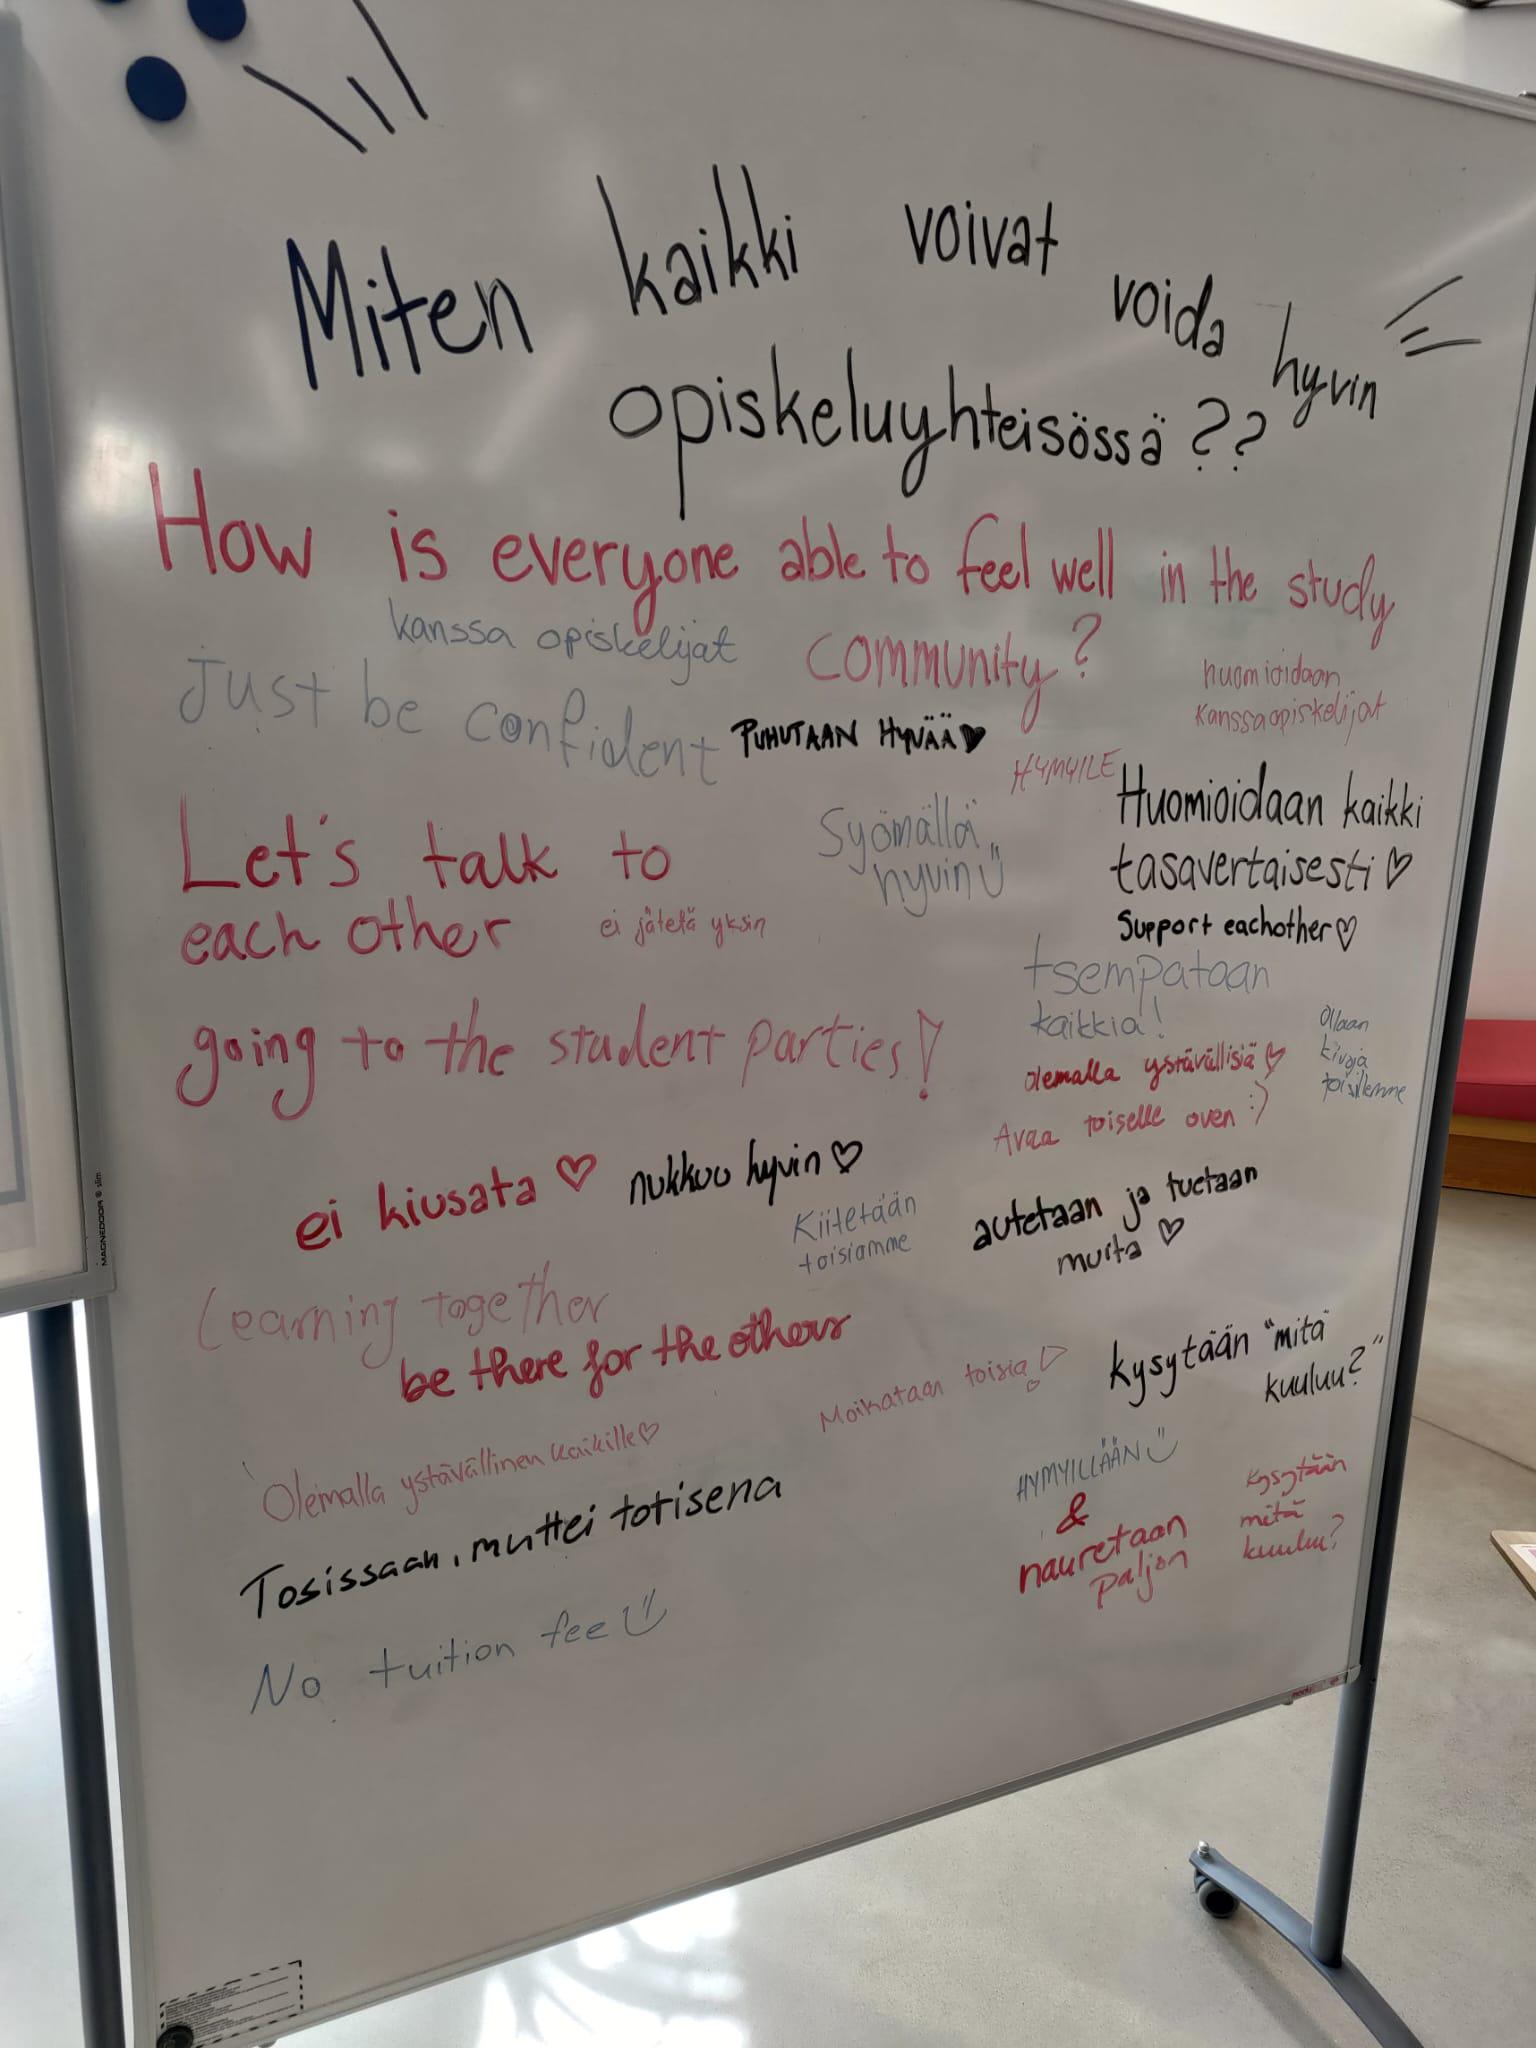 Miten kaikki voivat voida hyvin
opiskeluyhteisössä??
How is everyone able to feel well in the study
community?
kanssa opiskelijat
just be confident
PUHUTAAN HYVÄÄ♥
huomioidaan
kanssaopiskelijat
HYMYILE
Huomioidaan kaikki
tasavertaisesti♡
Support eachother♡
Syömällä
hyvin
Let's talk to
each other
ei jätetä yksin
tsempataan
kaikkia!
Ollaan
kivoja
toisillemme
going to the student parties!
olemalla ystävällisiä♡
Avaa toiselle oven :)
ei kiusata ♡
nukkuu hyvin♡
Kiitetään
toisiamme
autetaan ja tuetaan
muita ♡
Learning together
be there for the others
Moikataan toisia!
kysytään "mitä
kuuluu?"
Olemalla ystävällinen kaikille♡
Tosissaan, muttei totisena
HYMYILLÄÄN
&
nauretaan
paljon
kysytään
mitä
kuuluu?
No tuition fee
MAGNEDOOR® slim